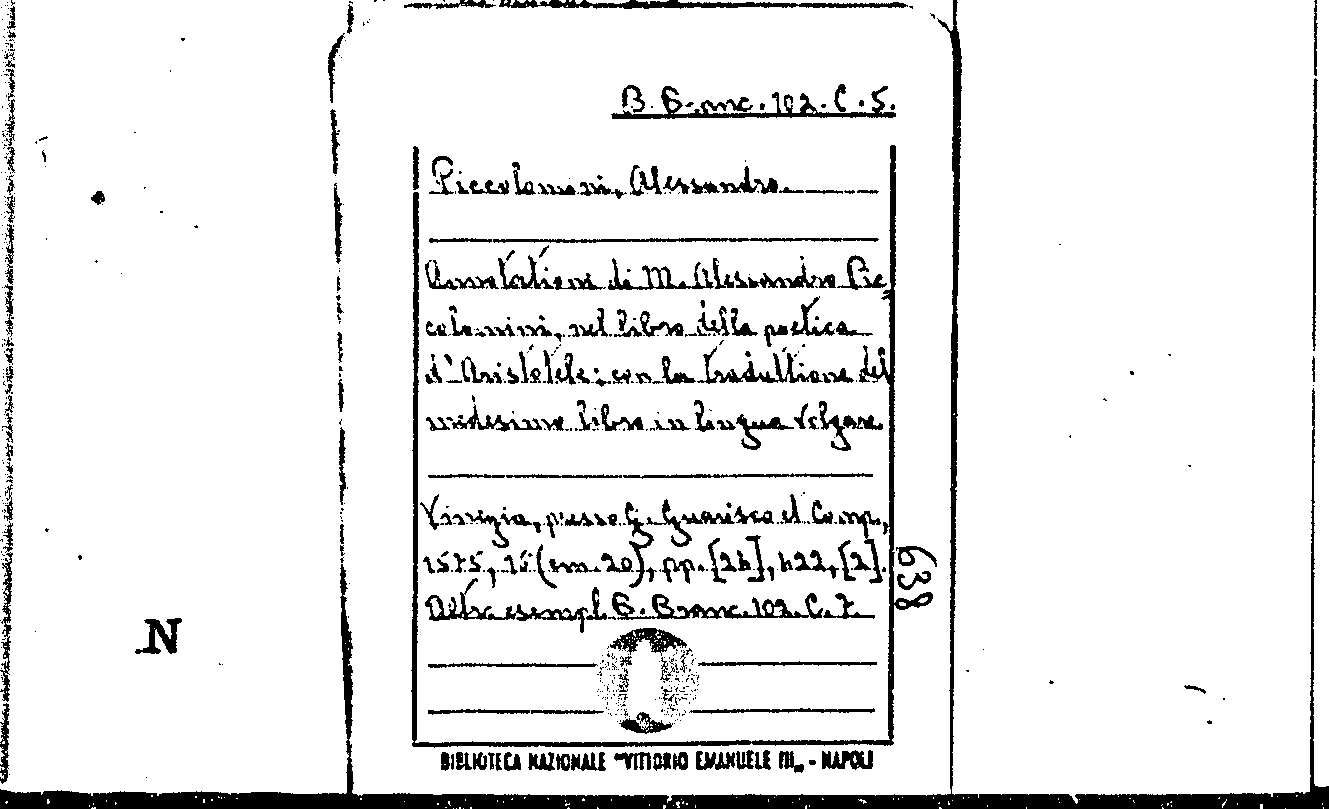 B. Branc. 102. C. 5.
Piccolomini, Alessandro.
Annotationi di M. Alessandro Pic=
colomini, nel libro della poetica
d'Aristotele; con la traduttione del
medesimo libro in lingua Volgare.
Vinegia, presso G. Guarisco et Comp.,
1575, 15 (cm. 20), pp. [24], 422, [2].
Altra esempl. B. Branc. 102. C. 7.
638
N
BIBLIOTECA NAZIONALE "VITTORIO EMANUELE III„ - NAPOLI